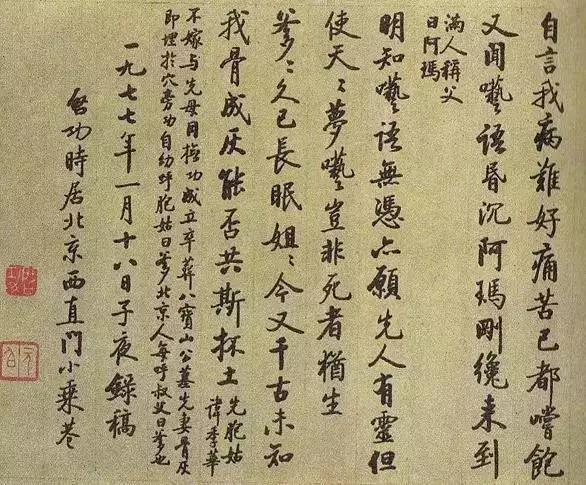 自言我病難好痛苦已都嚐飽
又聞囈語昏沉阿瑪剛纔来到
滿人稱父
曰阿瑪
明知囈語無憑亦願先人有靈但
使天々夢囈豈非死者猶生
爹々久已長眠姐々今又千古未知
我骨成灰能否共斯抔土
先胞姑
諱季華
不嫁與先母同撫功成立卒葬八寶山公墓先妻骨灰
即埋於穴旁功自幼呼胞姑曰爹北京人每呼叔父曰爹也
一九七七年一月十八日子夜錄稿
啓功時居北京西直門小乘巷